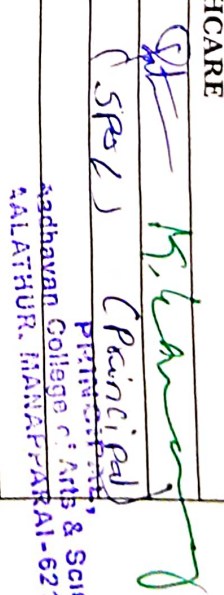 HCARE
(SPOC) (Principal)
PRINCIPAL,
Aadhavan College of Arts & Scie
AALATHUR, MANAPPARAI-621